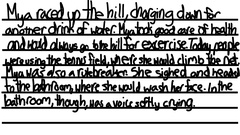 Mya raced up the hill, charging down for
another drink of water. Mya took good care of health
and would always go to the hill for exercise. Today people
were using the tennis field, where she would climb the net.
Mya was also a rulebreaker. She sighed and headed
to the bathroom, where she would wash her face. In the
bathroom, though, was a voice softly crying.